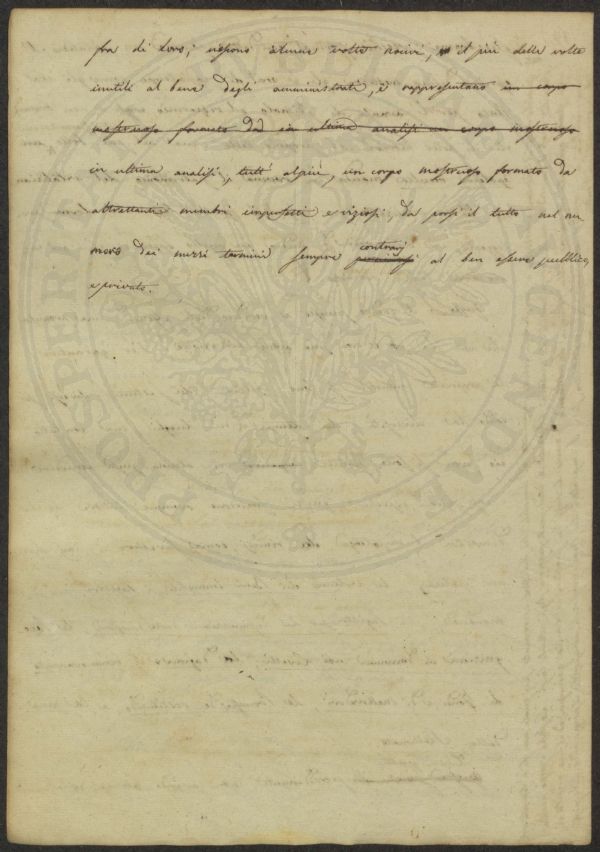 fra di loro; essono alcune volte nocivi, il più delle volte
inutili al bene degli amministrati, e rappresentano in corpo
mostruoso formato da in ultima analisi un corpo mostruoso
in ultima analisi, tutt' al più, un corpo mostruoso formato da
altrettanti membri imperfetti e viziosi, da porsi il tutto nel nu
mero dei mezzi termini sempre contrarj al ben essere pubblico,
e privato.
PROSPERITATI AUGENDAE